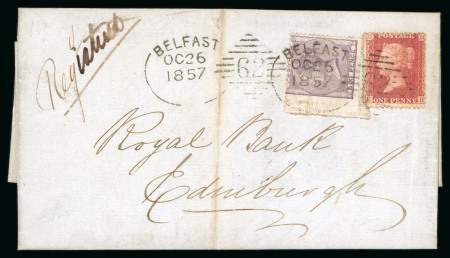 Registered
BELFAST
OC 26
1857
62
BELFAST
OC 26
1857
62
POSTAGE
ONE PENNY
Royal Bank
Edinburgh